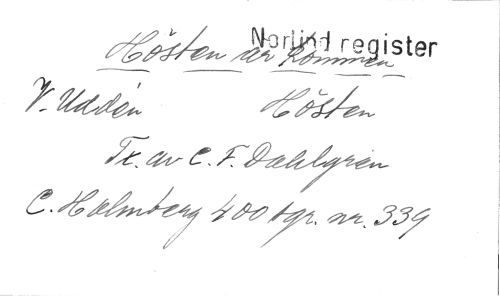 Norlind register
Hösten är kommen
V. Uddén Hösten
Tx. av C. F. Dahlgren
C. Holmberg 400 tgr. nr. 339